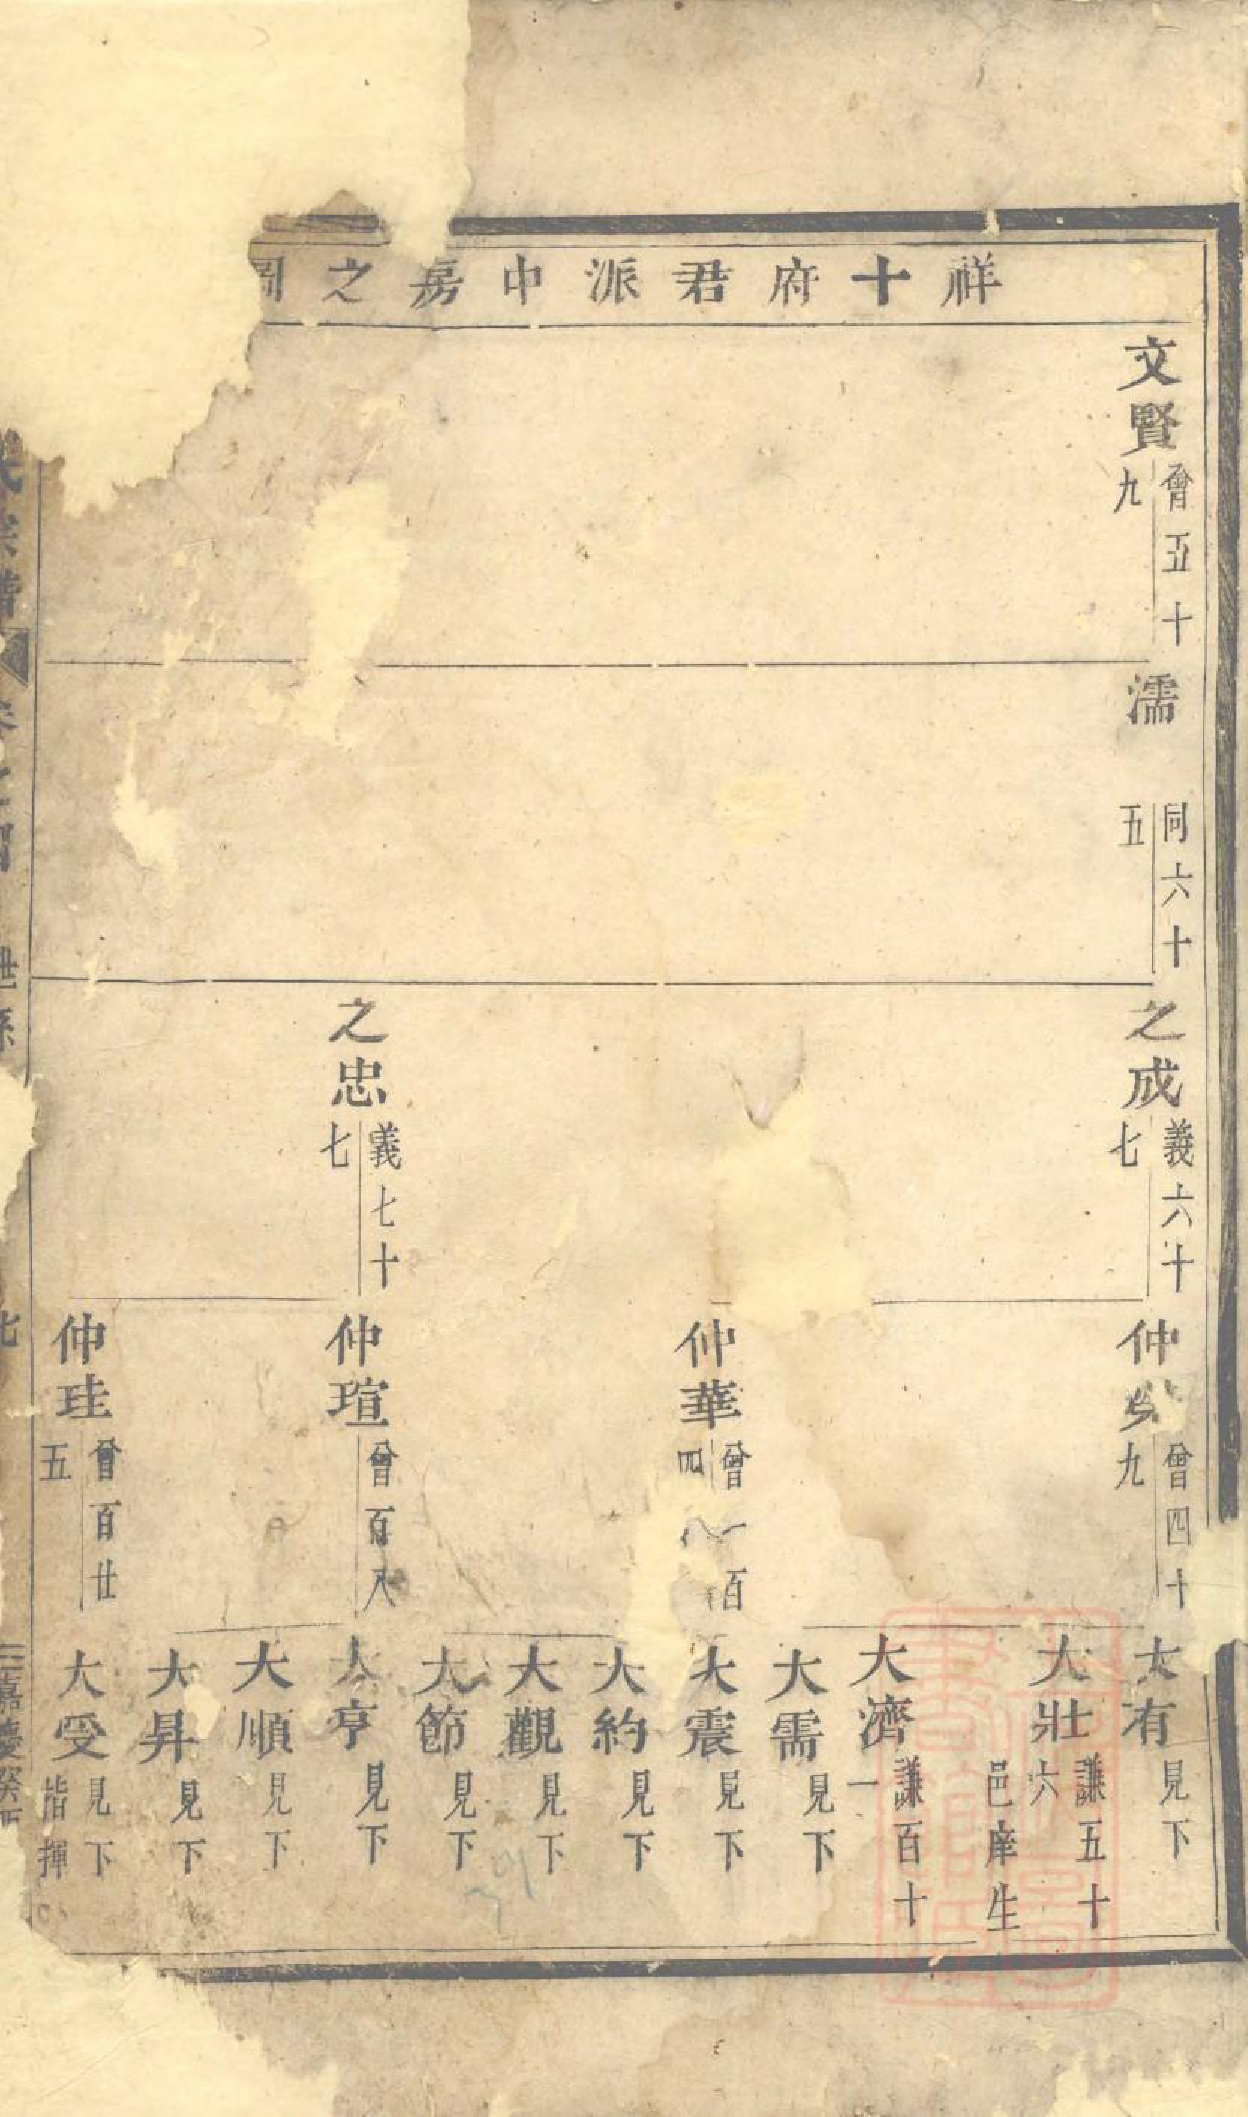 祥十府君派中房之圖
文賢 會五十九
濡 同六十五
之成 義六十七
之忠 義七十七
仲 曾四十九
仲華 曾一百四
仲瑄 曾百八
仲珪 曾百廿五
大有 見下
大壯 謙五十六 邑庠生
大濟 謙百十一
大需 見下
大震 見下
大約 見下
大觀 見下
大節 見下
大亨 見下
大順 見下
大昇 見下
大受 見下 指揮
氏宗譜 卷之 世系 七 嘉慶癸酉